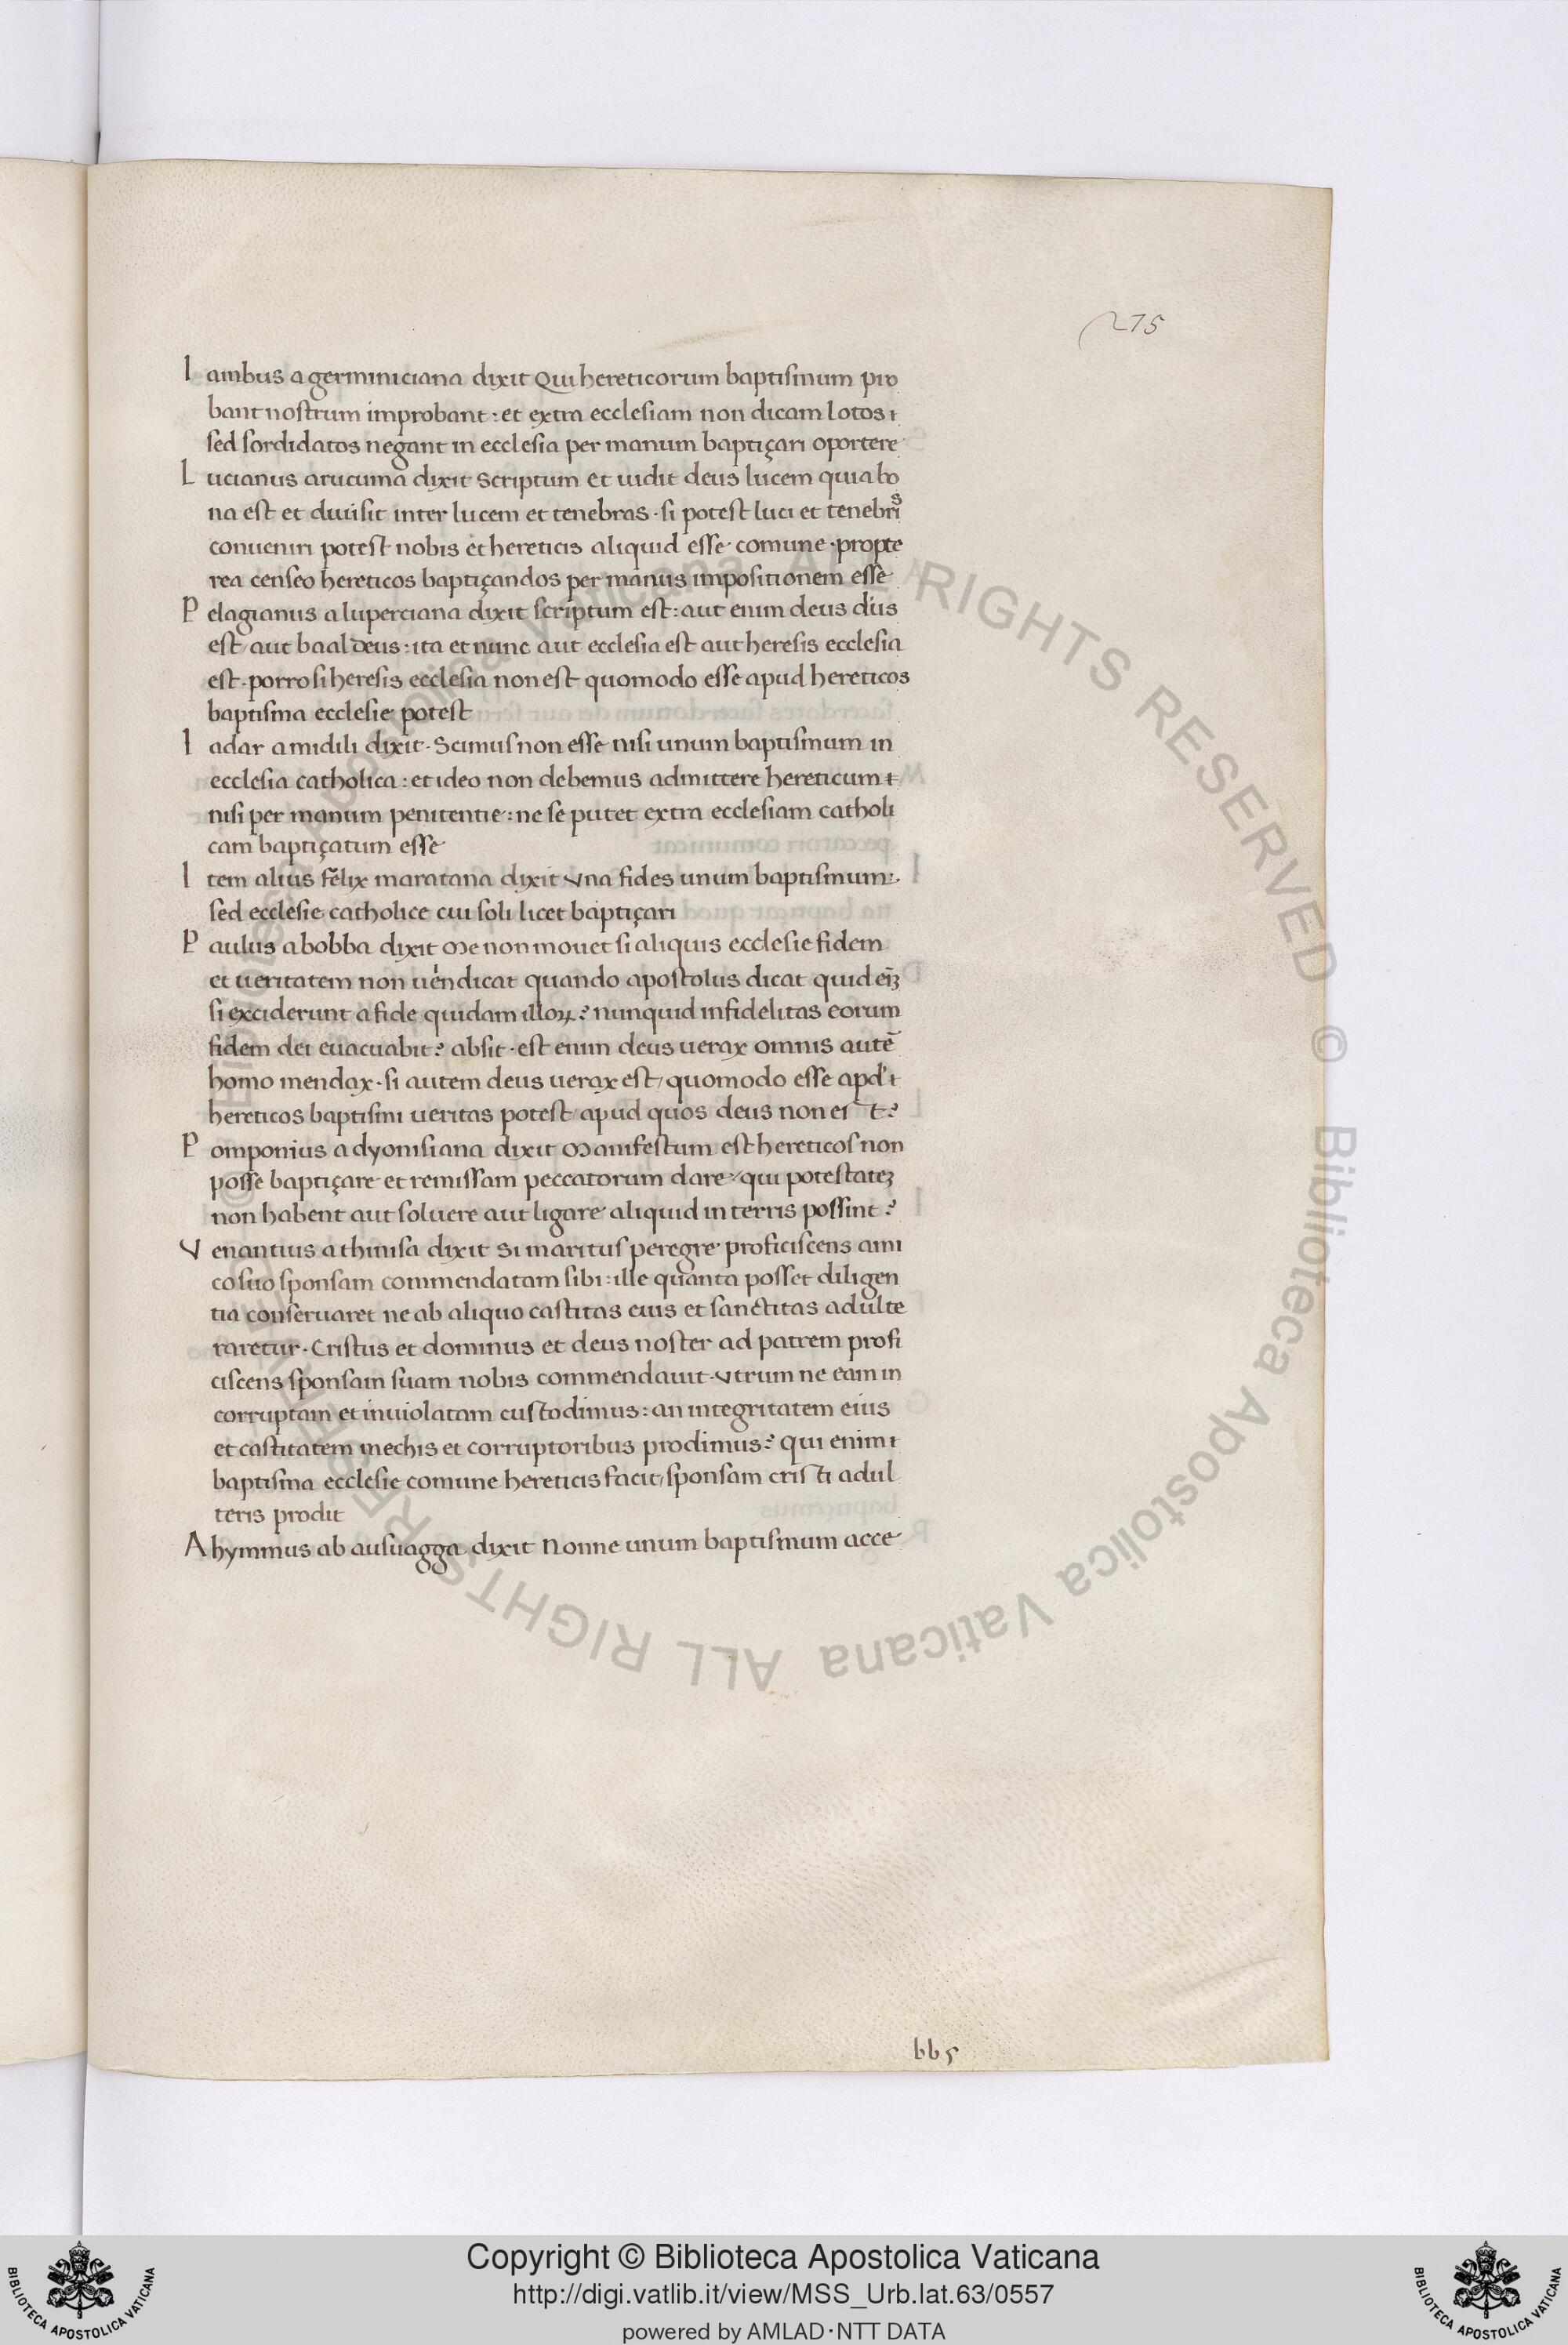 275
I ambus a germiniciana dixit Qui hereticorum baptismum pro
bant nostrum improbant: et extra ecclesiam non dicam lotos
sed sordidatos negant in ecclesia per manum baptiçari oportere
L ucianus arucuma dixit Scriptum Et uidit deus lucem quia bo
na est et diuisit inter lucem et tenebras· si potest luci et tenebris
conueniri potest nobis et hereticis aliquid esse comune· propte
rea censeo hereticos baptiçandos per manus impositionem esse
P elagianus a luperciana dixit scriptum est: aut enim deus dn̄s
est/ aut baal deus: ita et nunc aut ecclesia est aut heresis ecclesia
est· porro si heresis ecclesia non est quomodo esse apud hereticos
baptisma ecclesie potest
I adar a midili dixit· Scimus non esse nisi unum baptismum in
ecclesia catholica: et ideo non debemus admittere hereticum
nisi per manum penitentie: ne se putet extra ecclesiam catholi
cam baptiçatum esse
I tem alius felix maratana dixit Vna fides unum baptismum:
sed ecclesie catholice cui soli licet baptiçari
P aulus a bobba dixit Me non mouet si aliquis ecclesie fidem
et ueritatem non uendicat quando apostolus dicat quid eīȝ
si exciderunt a fide quidam illoꝝ? nunquid infidelitas eorum
fidem dei euacuabit? absit· est enim deus uerax omnis autē
homo mendax· si autem deus uerax est/ quomodo esse apd'
hereticos baptismi ueritas potest/ apud quos deus non est?
P omponius a dyonisiana dixit Manifestum est hereticos non
posse baptiçare et remissam peccatorum dare/ qui potestateȝ
non habent aut soluere aut ligare aliquid in terris possint?
V enantius a thinisa dixit Si maritus peregre proficiscens ami
co suo sponsam commendatam sibi: ille quanta posset diligen
tia conseruaret ne ab aliquo castitas eius et sanctitas adulte
raretur· Cristus et dominus et deus noster ad patrem profi
ciscens sponsam suam nobis commendauit· Vtrum ne eam in
corruptam et inuiolatam custodimus: an integritatem eius
et castitatem mechis et corruptoribus prodimus? Qui enim
baptisma ecclesie comune hereticis facit/ sponsam cristi adul
teris prodit
A hymmus ab ausuagga dixit Nonne unum baptismum acce
bb5
© Biblioteca Apostolica Vaticana ALL RIGHTS RESERVED © Biblioteca Apostolica Vaticana ALL RIGHTS RESERVED
Copyright © Biblioteca Apostolica Vaticana
http://digi.vatlib.it/view/MSS_Urb.lat.63/0557
powered by AMLAD·NTT DATA
BIBLIOTECA APOSTOLICA VATICANA
BIBLIOTECA APOSTOLICA VATICANA